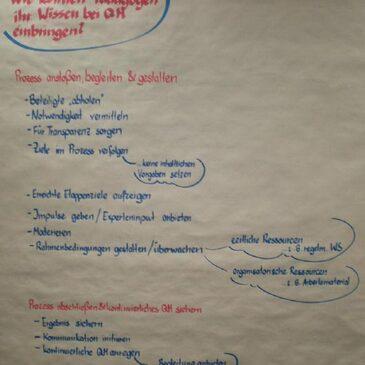 Wie können Pädagogen
ihr Wissen bei QM
einbringen?
Prozess anstoßen, begleiten & gestalten
- Beteiligte "abholen"
- Notwendigkeit vermitteln
- Für Transparenz sorgen
- Ziele im Prozess verfolgen
...keine inhaltlichen
Vorgaben setzen
- Erreichte Etappenziele aufzeigen
- Impulse geben / Experteninput anbieten
- Moderieren
- Rahmenbedingungen gestalten / überwachen
zeitliche Ressourcen
z. B. regelm. WS
organisatorische Ressourcen
z. B. Arbeitsmaterial
Prozess abschließen & kontinuierliches QM sichern
- Ergebnis sichern
- Kommunikation initiieren
- kontinuierliche QM anregen
Begleitung anbieten